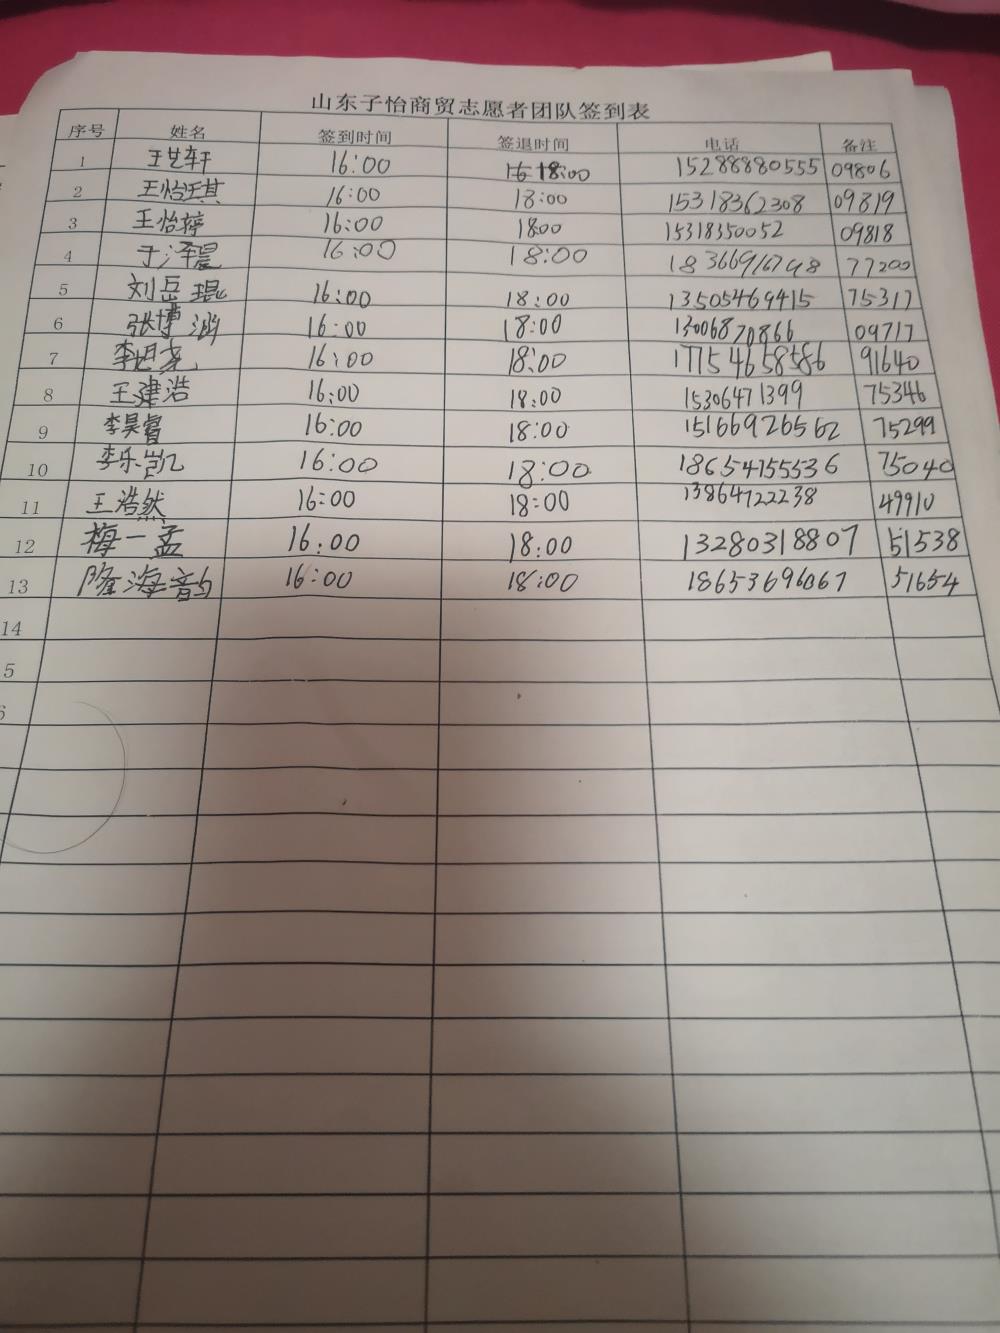 山东子怡商贸志愿者团队签到表
序号 姓名 签到时间 签退时间 电话 备注
1 王艺轩 16:00 18:00 15288880555 09806
2 王怡琪 16:00 18:00 15318362308 09819
3 王怡婷 16:00 18:00 15318350052 09818
4 于泽晨 16:00 18:00 18366916748 77200
5 刘岳琨 16:00 18:00 13505469415 75317
6 张博涵 16:00 18:00 13006870866 09717
7 16:00 18:00 17754658586 91640
8 王建浩 16:00 18:00 15306471399 75346
9 李昊睿 16:00 18:00 15166926562 75299
10 李乐凯 16:00 18:00 18654155536 75040
11 王浩然 16:00 18:00 13864722238 49910
12 梅一孟 16:00 18:00 13280318807 51538
13 隆海韵 16:00 18:00 18653696067 51654
14
5
6